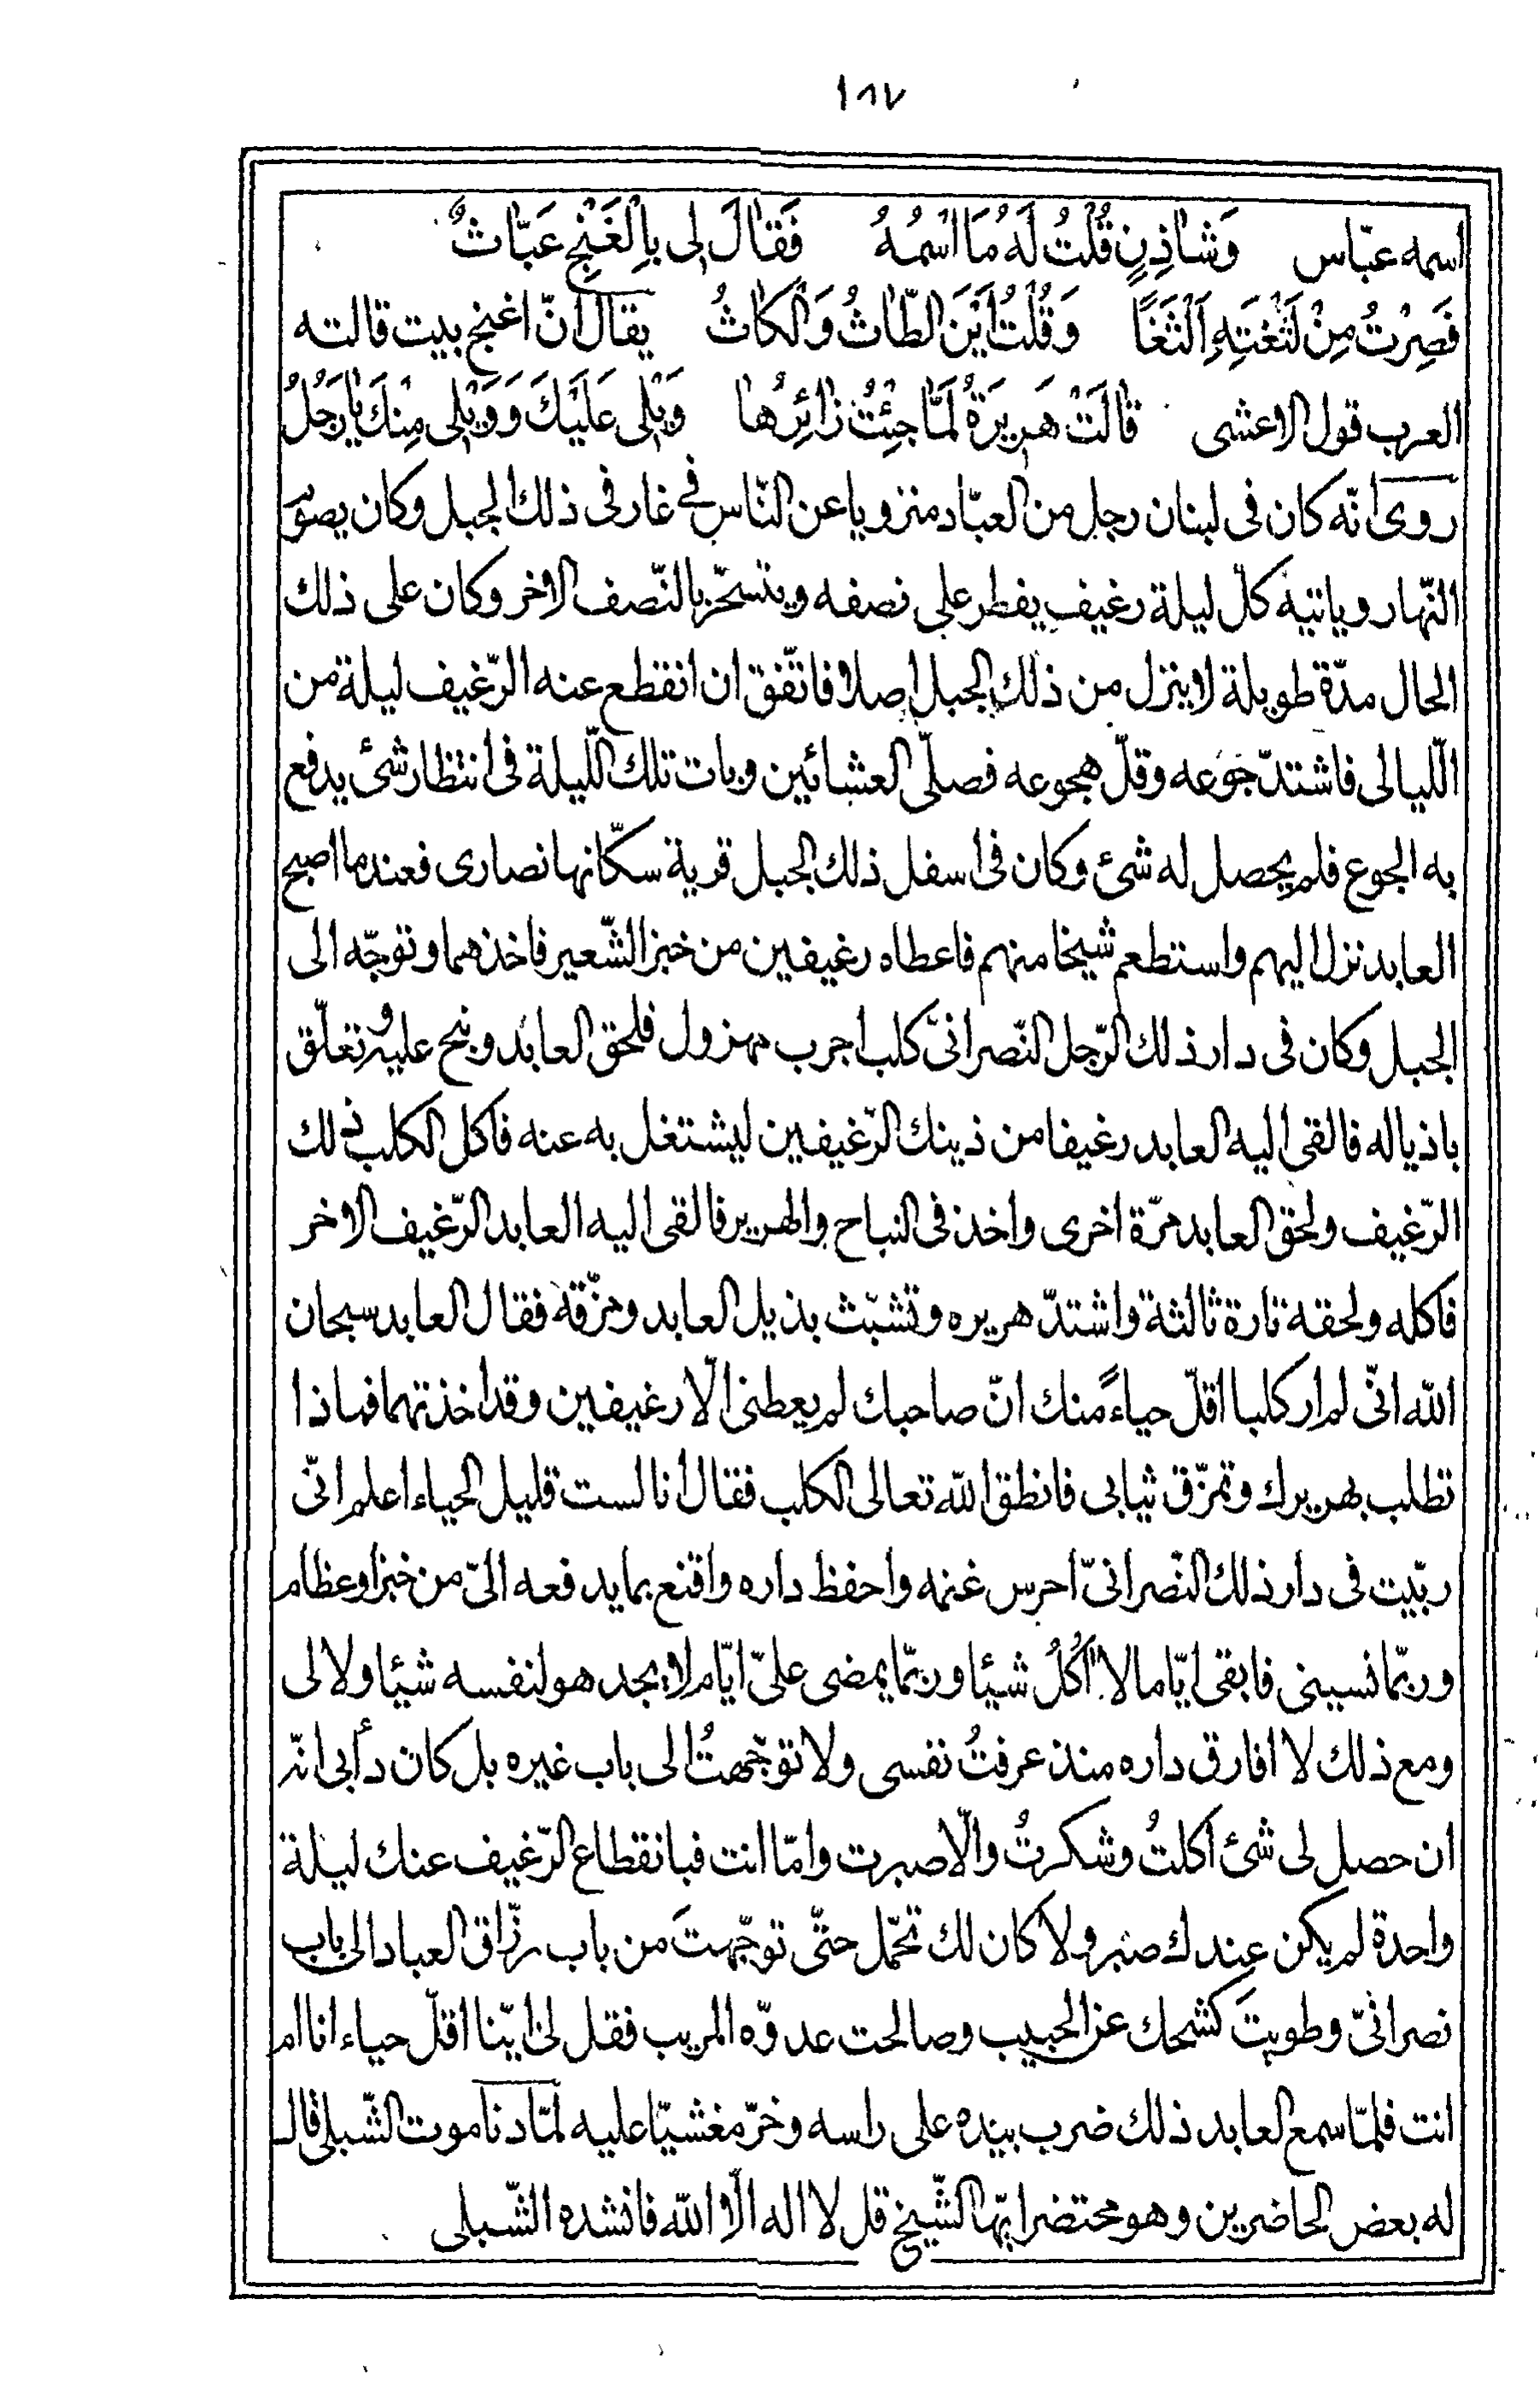 ١٨٧
اسمه عبّاس وَشٰاذِنٍ قُلْتُ لَهُ مَا اسْمُهُ فَقٰالَ لِى بِالْغَنْجِ عَبّٰاثٌ
فَصِرْتُ مِنْ لَثْغَتِهِ اَلْثَغًا وَقُلْتُ اَيْنَ الطّٰاثُ وَالْكٰاثُ يقال انّ اغنج بيت قالته
العرب قول الاعشى قٰالَتْ هَرِيرَةُ لَمّٰا جِئْتُ زٰائِرُهٰا وَيْلِى عَلَيْكَ وَوَيْلِى مِنْكَ يٰا رَجُلُ
روى انّه كان فى لبنان رجل من العبّاد منزويا عن النّاس فى غار فى ذلك الجبل وكان يصوم
النّهار وياتيه كلّ ليلة رغيف يفطر على نصفه ويتسحّر بالنّصف الاخر وكان على ذلك
الحال مدّة طويلة لا ينزل من ذلك الجبل اصلا فاتّفق ان انقطع عنه الرّغيف ليلة من
اللّيالى فاشتدّ جوعه وقلّ هجوعه فصلّى العشائين وبات تلك اللّيلة فى انتظار شئ يدفع
به الجوع فلم يحصل له شئ وكان فى اسفل ذلك الجبل قرية سكّانها نصارى فعندما اصبح
العابد نزل اليهم واستطعم شيخا منهم فاعطاه رغيفين من خبز الشّعير فاخذهما وتوجّه الى
الجبل وكان فى دار ذلك الرّجل النّصرانىّ كلب اجرب مهزول فلحق العابد ونبح عليه وتعلّق
باذياله فالقى اليه العابد رغيفا من ذينك الرّغيفين ليشتغل به عنه فاكل الكلب ذلك
الرّغيف ولحق العابد مرّة اخرى واخذ فى النباح والهرير فالقى اليه العابد الرّغيف الاخر
فاكله ولحقه تارة ثالثة واشتدّ هريره وتشبّث بذيل العابد ومزّقه فقال العابد سبحان
الله انّى لم ار كلبا اقلّ حياءً منك انّ صاحبك لم يعطنى الّا رغيفين وقد اخذتهما فماذا
تطلب بهريرك وتمزّق ثيابى فانطق الله تعالى الكلب فقال انا لست قليل الحياء اعلم انّى
ربّيت فى دار ذلك النّصرانىّ احرس غنمه واحفظ داره واقنع بما يدفعه الىّ من خبز او عظام
وربّما نسينى فابقى ايّاما لا اٰكُلُ شيئا وربّما يمضى علىّ ايّام لا يجد هو لنفسه شيئا ولا لى
ومع ذلك لا افارق داره منذ عرفتُ نفسى ولا توجّهتُ الى باب غيره بل كان دأبى انّه
ان حصل لى شئ اكلتُ وشكرتُ والّا صبرت وامّا انت فبانقطاع الرّغيف عنك ليلة
واحدة لم يكن عندك صبر ولا كان لك تحمّل حتّى توجّهتَ من باب رزّاق العباد الى باب
نصرانىّ وطويتَ كشحك عن الحبيب وصالحت عدوّه المريب فقل لى ايّنا اقلّ حياء انا ام
انت فلمّا سمع العابد ذلك ضرب بيده على راسه وخرّ مغشيّا عليه لمّا دنا موت الشّبلى قال
له بعض الحاضرين وهو محتضر ايّها الشّيخ قل لا اله الّا الله فانشده الشّبلى